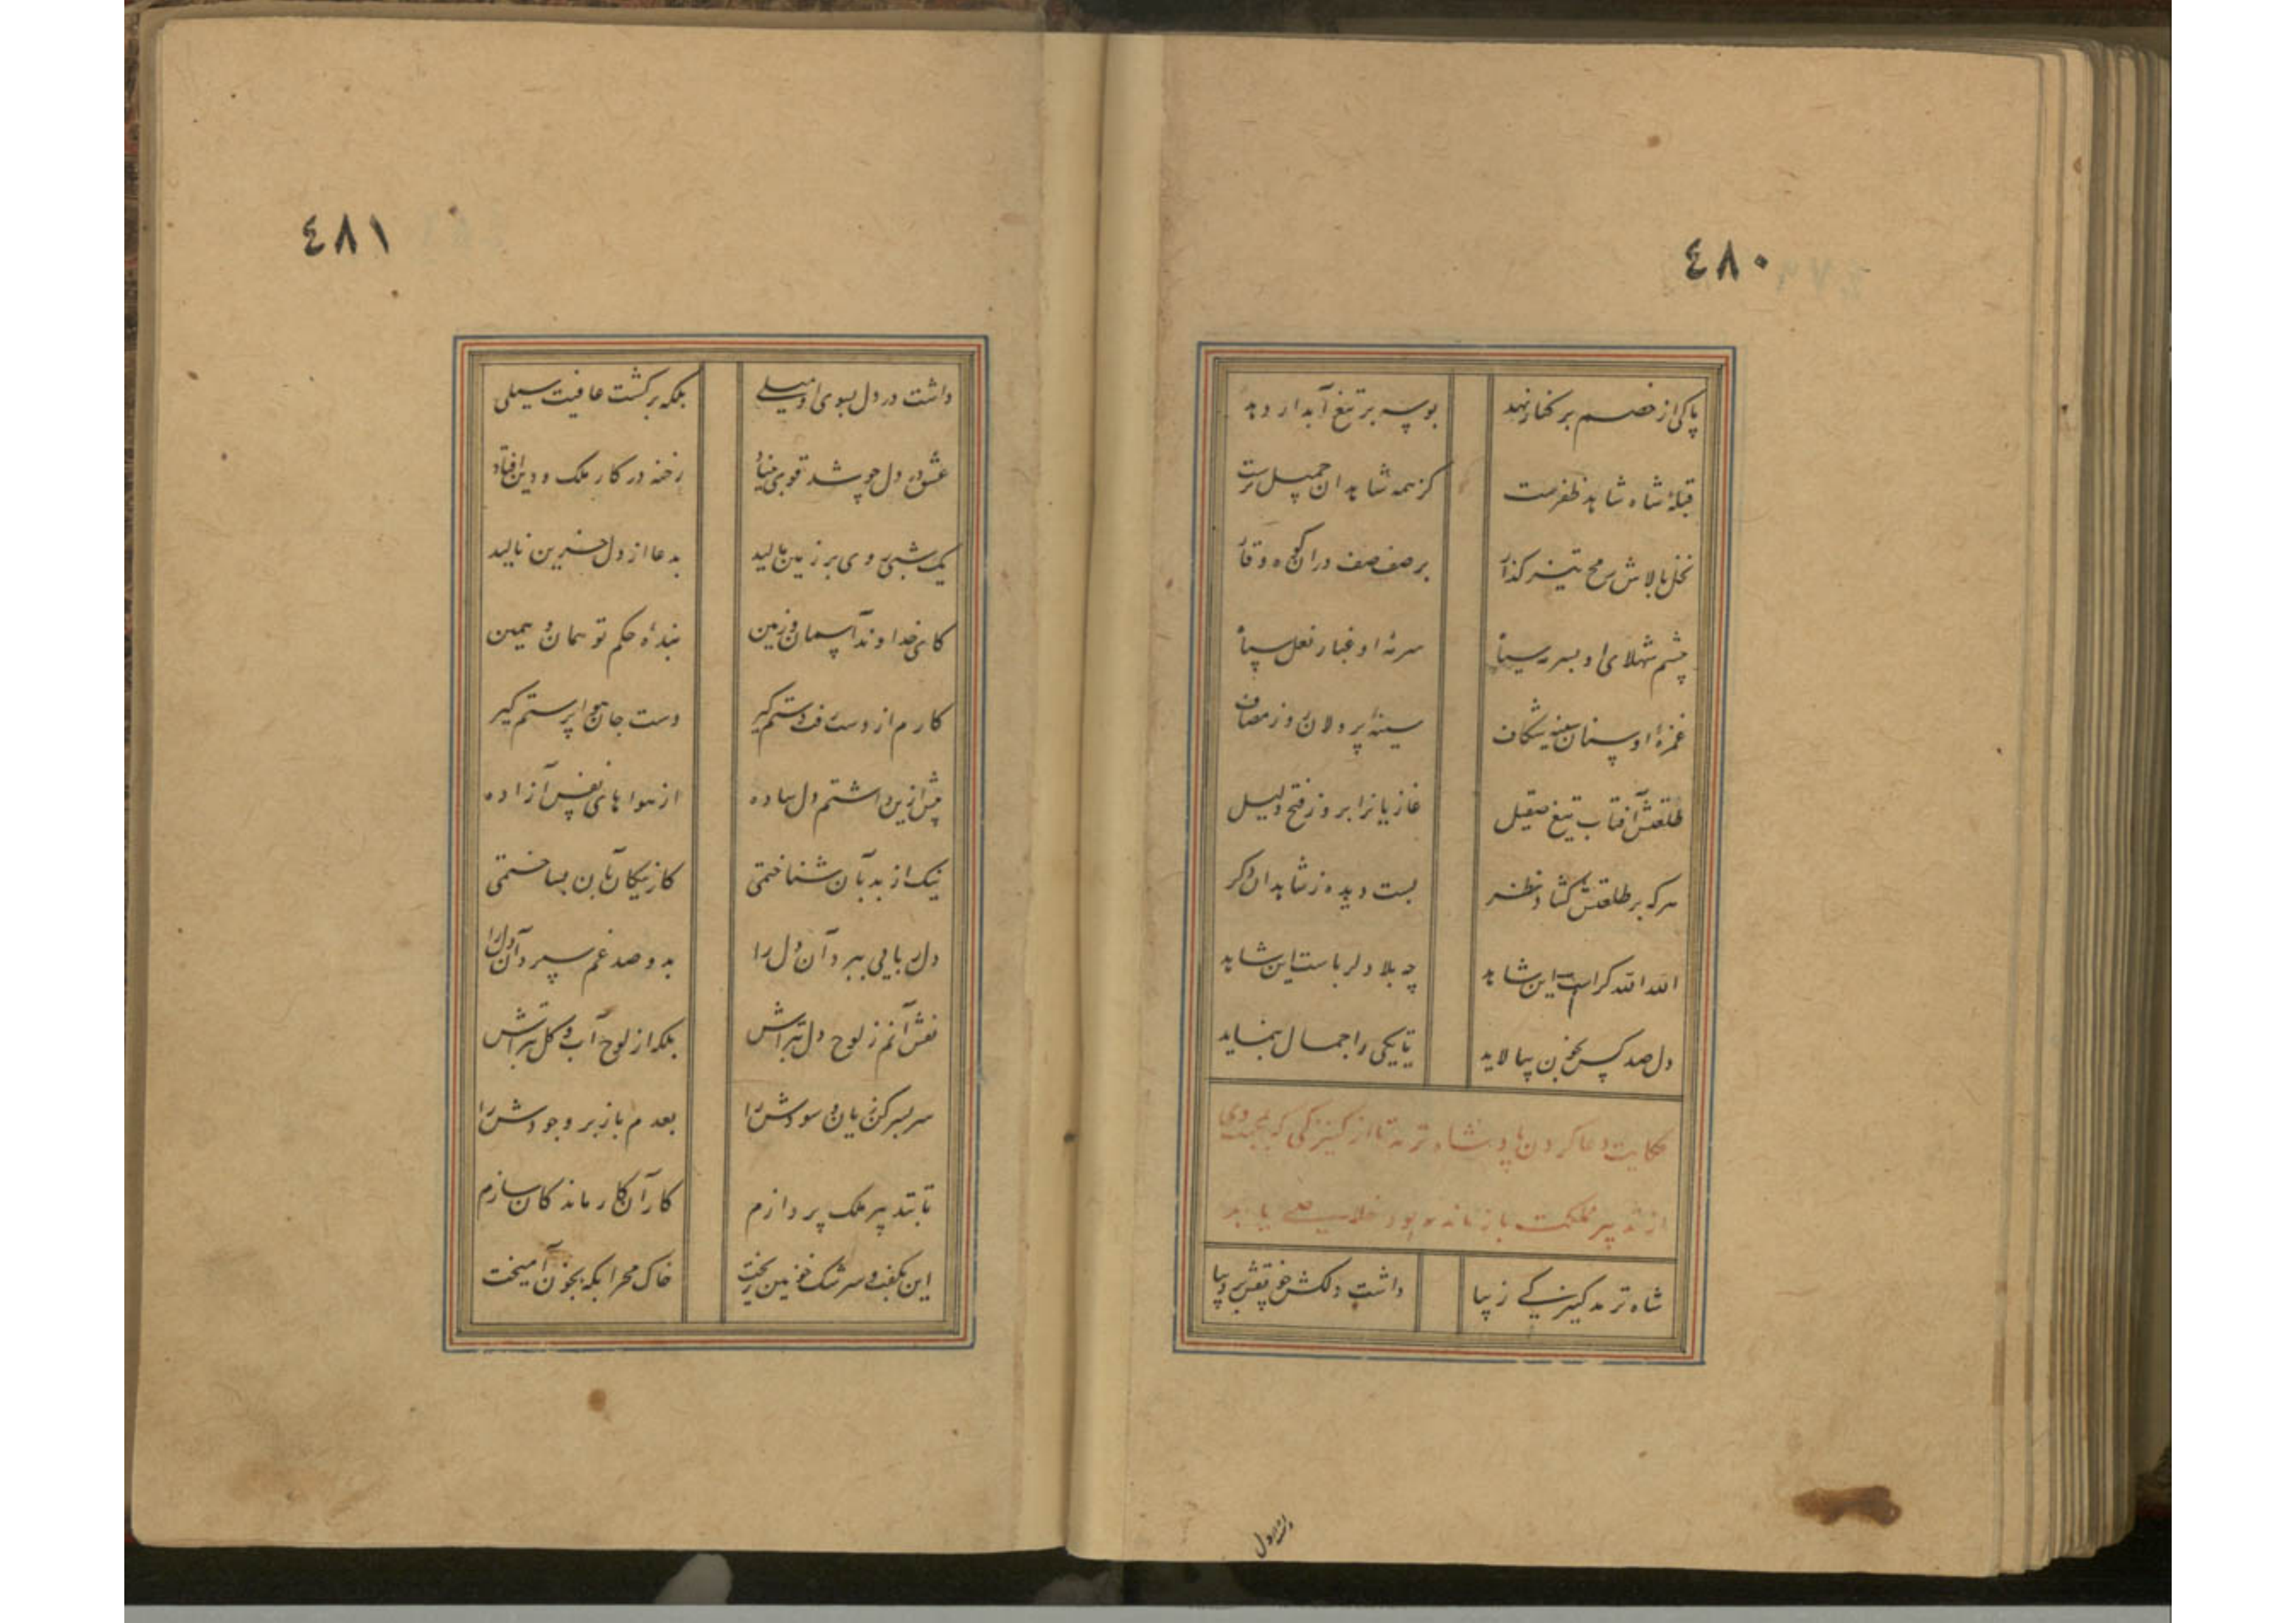 ٤٨٠
پاکی از خصم بر کنار نهد بوسه بر تیغ آبدار دهد
قبلهٔ شاه شاهد ظفرست کز همه شاهدان جمیل ترست
نخل بالاش رمح تیز گذار بر صف صفدران کوه وقار
چشم شهلای او سپر سیاه سرمهٔ او غبار نعل سپاه
غمزهٔ او سنان سینه شکاف سینهٔ پر دلان روز مصاف
طلعتش آفتاب تیغ صقیل غازیانرا بروز فتح دلیل
هر که بر طلعتش گشاد نظر بست دیده ز شاهدان دکر
الله الله کراست این شاهد چه بلا دلرباست این شاهد
دل صد کس بخون بیالاید تا یکی را جمال بنماید
حکایت دعا کردن پادشاه ترمد تا از کنیزکی که بمحبت وی
از تدبیر مملکت باز مانده بود خلاصی یابد
شاه ترمد کنیزکی زیبا داشت دلکش چو نقش بر دیبا
داشت در دل
٤٨١
داشت در دل بسوی او میلی بلکه بر کشت عافیت سیلی
عشق در دل چو شد قوی بنیاد رخنه در کار ملک و دین افتاد
یک شبی روی بر زمین مالید بدعا از دل حزین نالید
کای خداوند آسمان و زمین بندهٔ حکم تو همان و همین
کارم از دست رفت دستم گیر دست جان هواپرستم گیر
پیش ازین داشتم دل ساده از هواهای نفس آزاده
نیک از بد بآن شناختمی کار نیکان بآن بساختمی
دلربایی ببرد آن دل را بدو صد غم سپرد آن دل را
نقش آنم ز لوح دل بتراش بلکه از لوح آب و گل بتراش
سر بسر کن زیان و سودش را بعدم باز بر وجودش را
تا بتدبیر ملک پردازم کار آن کار ماندکان سازم
این بگفت و سرشک خونین ریخت خاک محرابکه بخون آمیخت